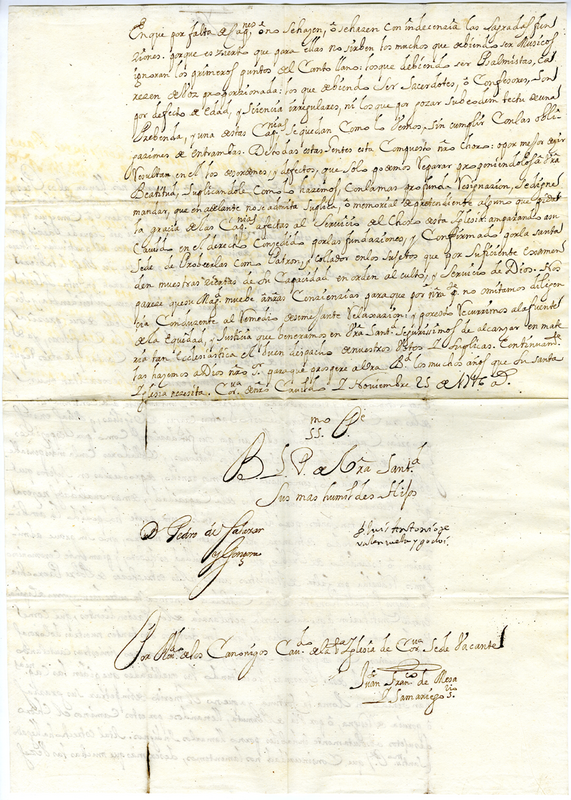 En que por falta de Cap.nes ō no se hazen, ō se hazen con indecencia las sagradas fun
ziones. porque es zierto que para ellas no sirben los muchos que debiendo ser Musicos
ignoran los primeros puntos del Canto llano: los que debiendo ser Psalmistas, Ca
rezen de Voz proporzionada: los que debiendo ser Sacerdotes, o Confesores, son
por defecto de edad, y sciencia irregulares, ni los que por gozar sub eodem tectu de una
Prebenda, y una destas Cap.nias se quedan como lo vemos, sin cumplir con las obli
gaziones de entrambas. De todas estas sentes esta compuesto nro Choro: o por mejor dezir
resultan en el los desordenes, y defectos, que solo podemos reparar proponiendolos a Vra
Beatitud, suplicandole como lo hazemos, con la mas profunda resignazion, se digne
mandar, que en adelante no se admita suplica, o memorial de pretendiente alguno que
la gracia de las Cap.nias afectas al servicio del Choro desta Iglesia: amparando a este
Cavildo en el derecho concedido por las fundaciones, y confirmado por la santa
Sede, de Probeerlas como Patron, y Colador en los sujetos que por suficiente examen
den muestras ziertas de su Capacidad en orden al culto, y servicio de Dios. Nos
parece que su Mag.d muebe nras Conciencias para que por nra p.te no omitamos diligen
cia conduzente al remedio de semejante relaxazion, y por esto recurrimos a la fuente
de la equidad, y Justicia que veneramos en Vra Sant.d segurissimos de alcanzar en mate
ria tan Eclesiastica el buen despacho de nuestros Ruegos y suplicas. Continuam.te
las hazemos a Dios nro s.r para que prospere a Vra B.d los muchos años que su santa
Iglesia necesita. Cor.va de nro Cavildo y Noviembre 25 de
mo Pe
SS. P.
B. L. P. de Vra Sant.d
Sus mas humildes Hijos
D. Pedro de Salazar
y Gongora
D Luis Antonio de
Valenzuela y godoi
Por A.do de los Canonigos Cav.do de la S.ta Iglesia de Cor.va Sede Vacante
Juan Fran.co de Mesa
y Samaniego S.rio